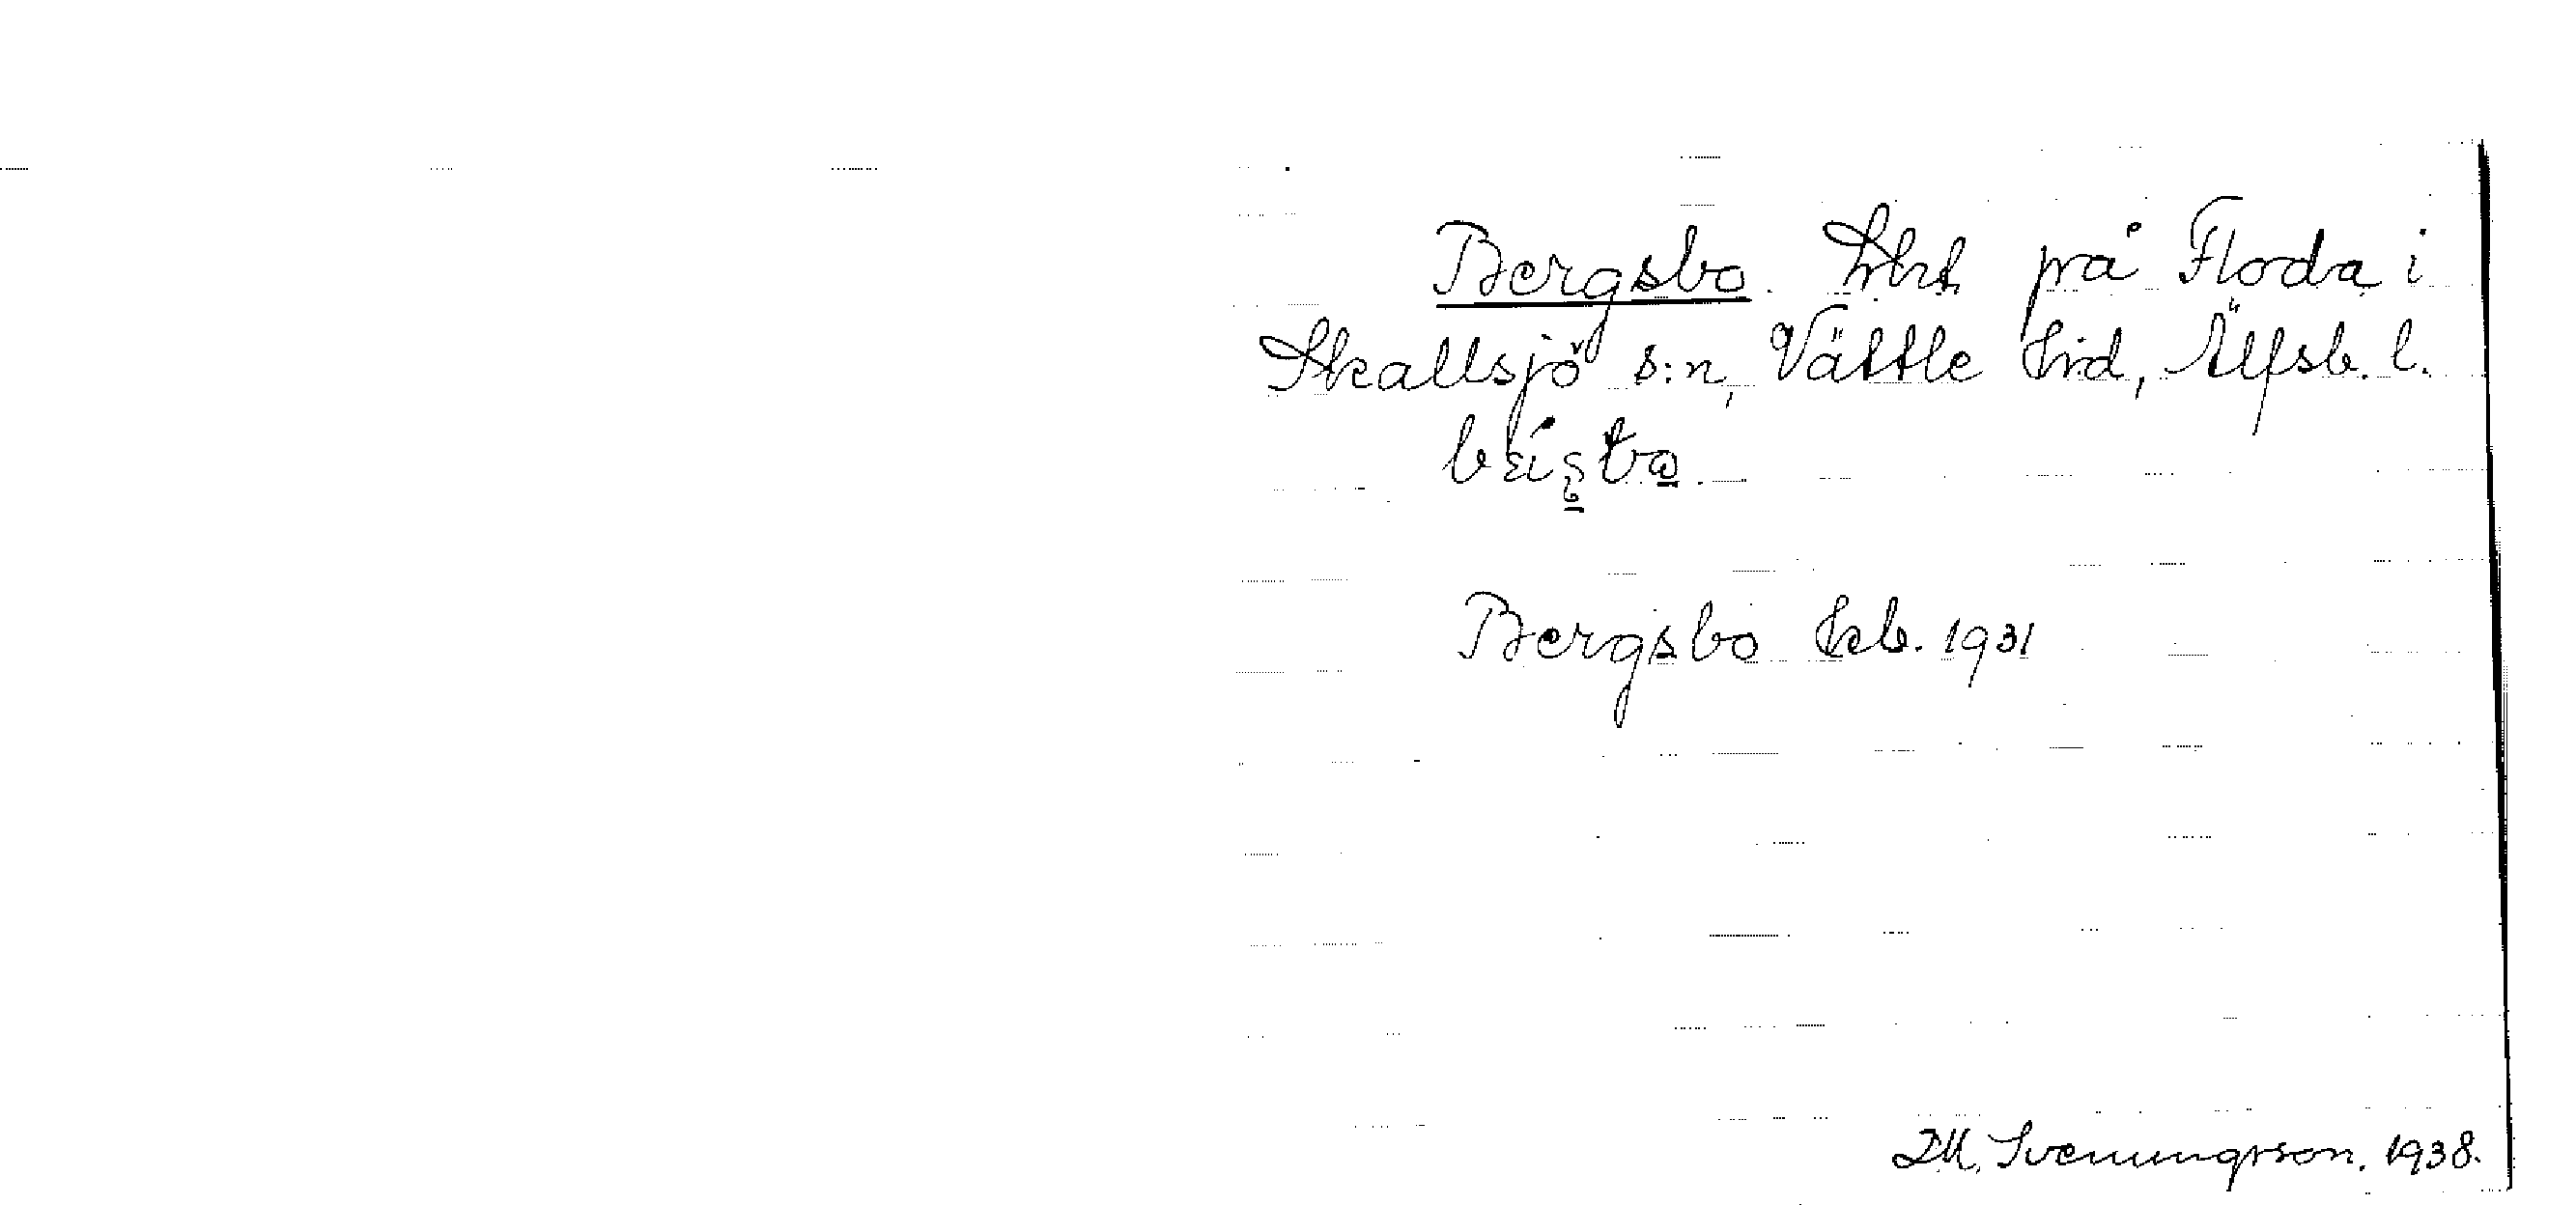 Bergsbo. Lht på Floda i
Skallsjö s:n, Vättle hd, Älfsb. l.
Bergsbo kb. 1931
D.M. Svenungsson. 1938.